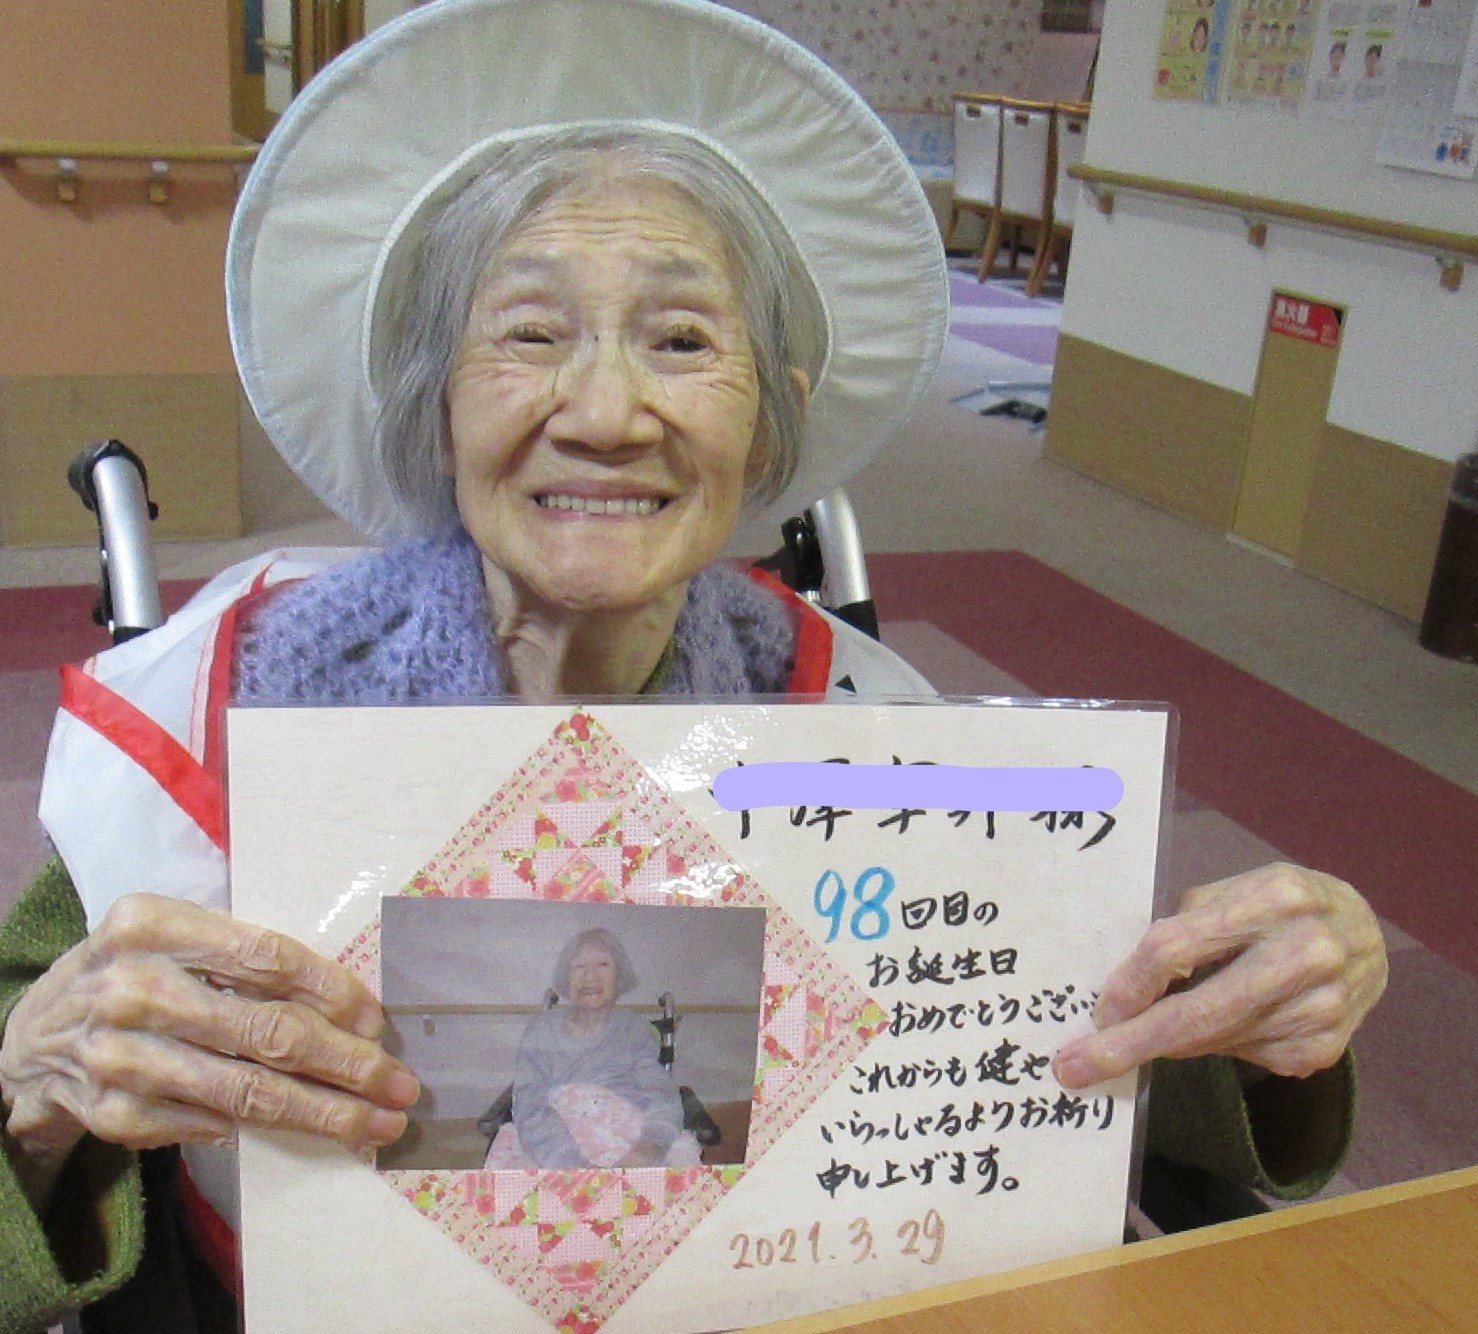 消火器
様
98回目の
お誕生日
おめでとうござい
これからも健や
いらっしゃるようお祈り
申し上げます。
2021.3.29